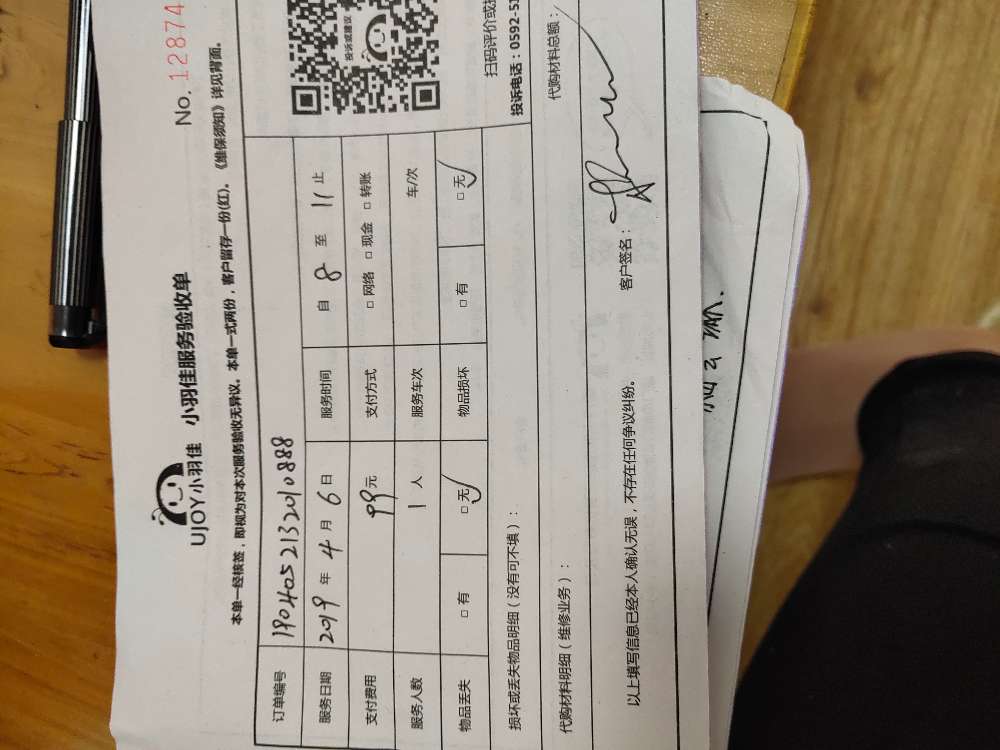 No. 12874
UJOY小羽佳 小羽佳服务验收单
本单一经核签，即视为对本次服务验收无异议。本单一式两份，客户留存一份(红)。《维保须知》详见背面。
订单编号 1904052132010888
服务日期 2019 年 4 月 6 日 服务时间 自 8 至 11 止
支付费用 99元 支付方式 □ 网络 □ 现金 □ 转账
服务人数 1 人 服务车次 车/次
物品丢失 □ 有 □ 无 ✓ 物品损坏 □ 有 □ 无 ✓
投诉或建议
损坏或丢失物品明细（没有可不填）：
扫码评价或
投诉电话：0592-5
代购材料明细（维修业务）： 代购材料总额：
以上填写信息已经本人确认无误，不存在任何争议纠纷。 客户签名：